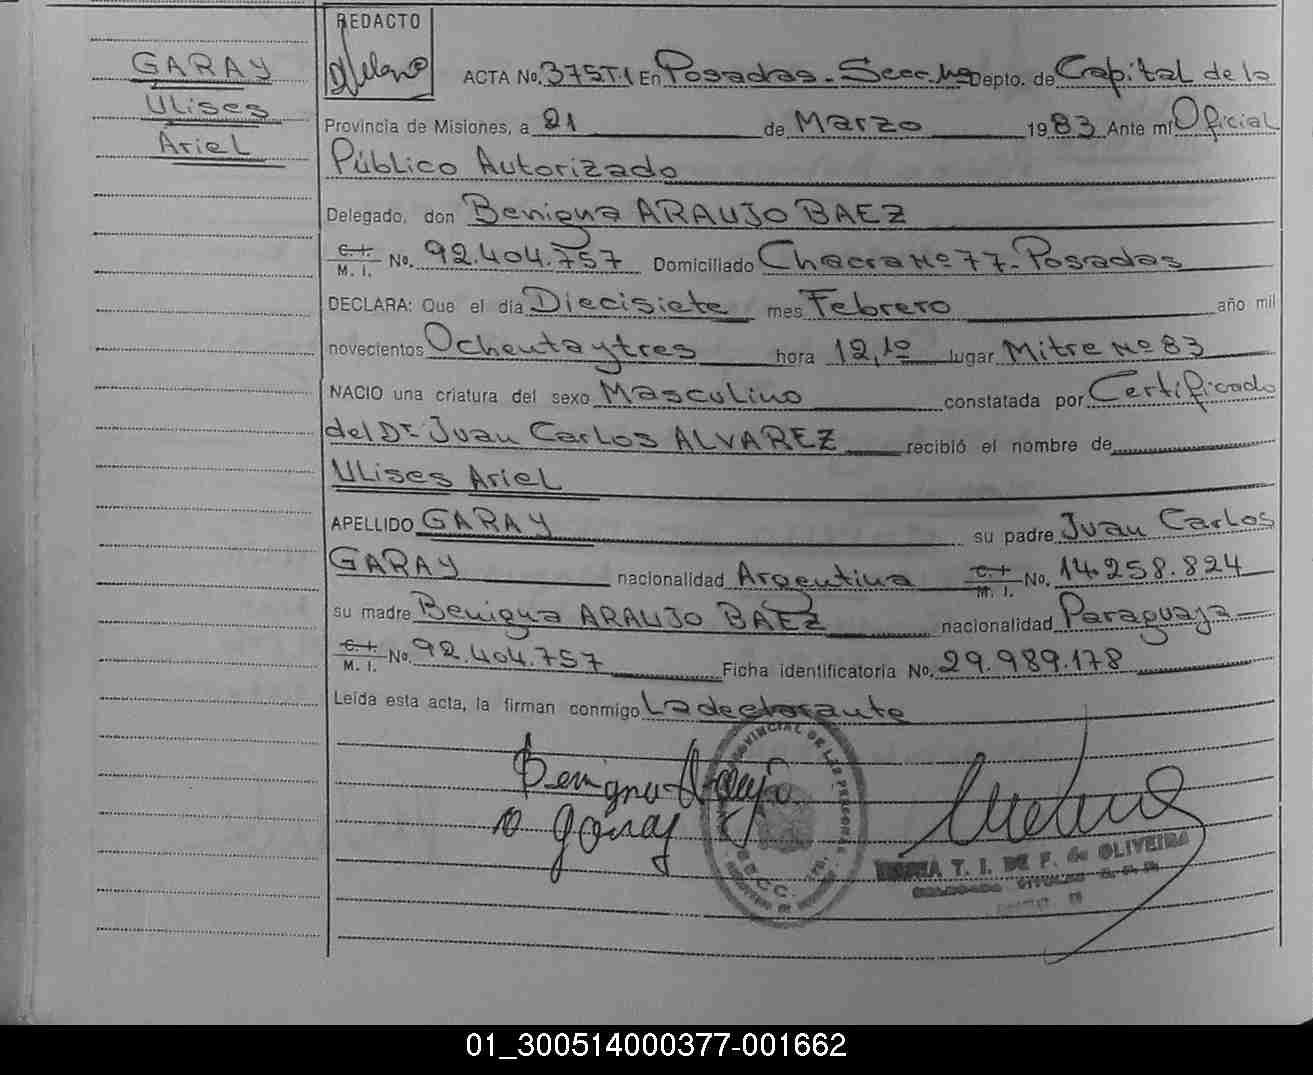 GARAY
Ulises
Ariel
REDACTO
ACTA No. 375T.1 En Posadas - Secc. Depto. de Capital de la
Provincia de Misiones, a 21 de Marzo 1983 Ante mí Oficial
Público Autorizado
Delegado, don Benigna ARAUJO BAEZ
C. I.
M. I. No. 92.404.757 Domiciliado Chacra Nº 77 - Posadas
DECLARA: Que el día Diecisiete mes Febrero año mil
novecientos Ochentaytres hora 12,10 lugar Mitre Nº 83
NACIO una criatura del sexo Masculino constatada por Certificado
del Dr Juan Carlos ALVAREZ recibió el nombre de
Ulises Ariel
APELLIDO GARAY su padre Juan Carlos
GARAY nacionalidad Argentina C. I.
M. I. No. 14.258.824
su madre Benigna ARAUJO BAEZ nacionalidad Paraguaya
C. I.
M. I. No. 92.404.757 Ficha identificatoria No. 29.989.178
Leída esta acta, la firman conmigo La declarante
Benigna Araujo
garay
PROVINCIAL DE LAS PERSONAS
T. I. DE F. de OLIVEIRA
01_300514000377-001662